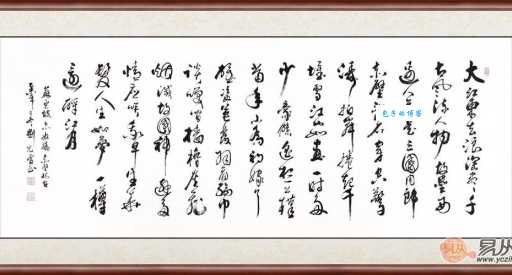 大江東去浪淘盡千
古風流人物故壘西
邊人道是三國周郎
赤壁亂石穿空驚
濤拍岸捲起千
堆雪江山如畫一時多
少豪傑遙想公瑾
當年小喬初嫁了
雄姿英發羽扇綸巾
談笑間檣櫓灰飛
煙滅故國神遊多
情應笑我早生華
髮人生如夢一樽
還酹江月
蘇東坡念奴嬌赤壁懷古
包子的博客
易从